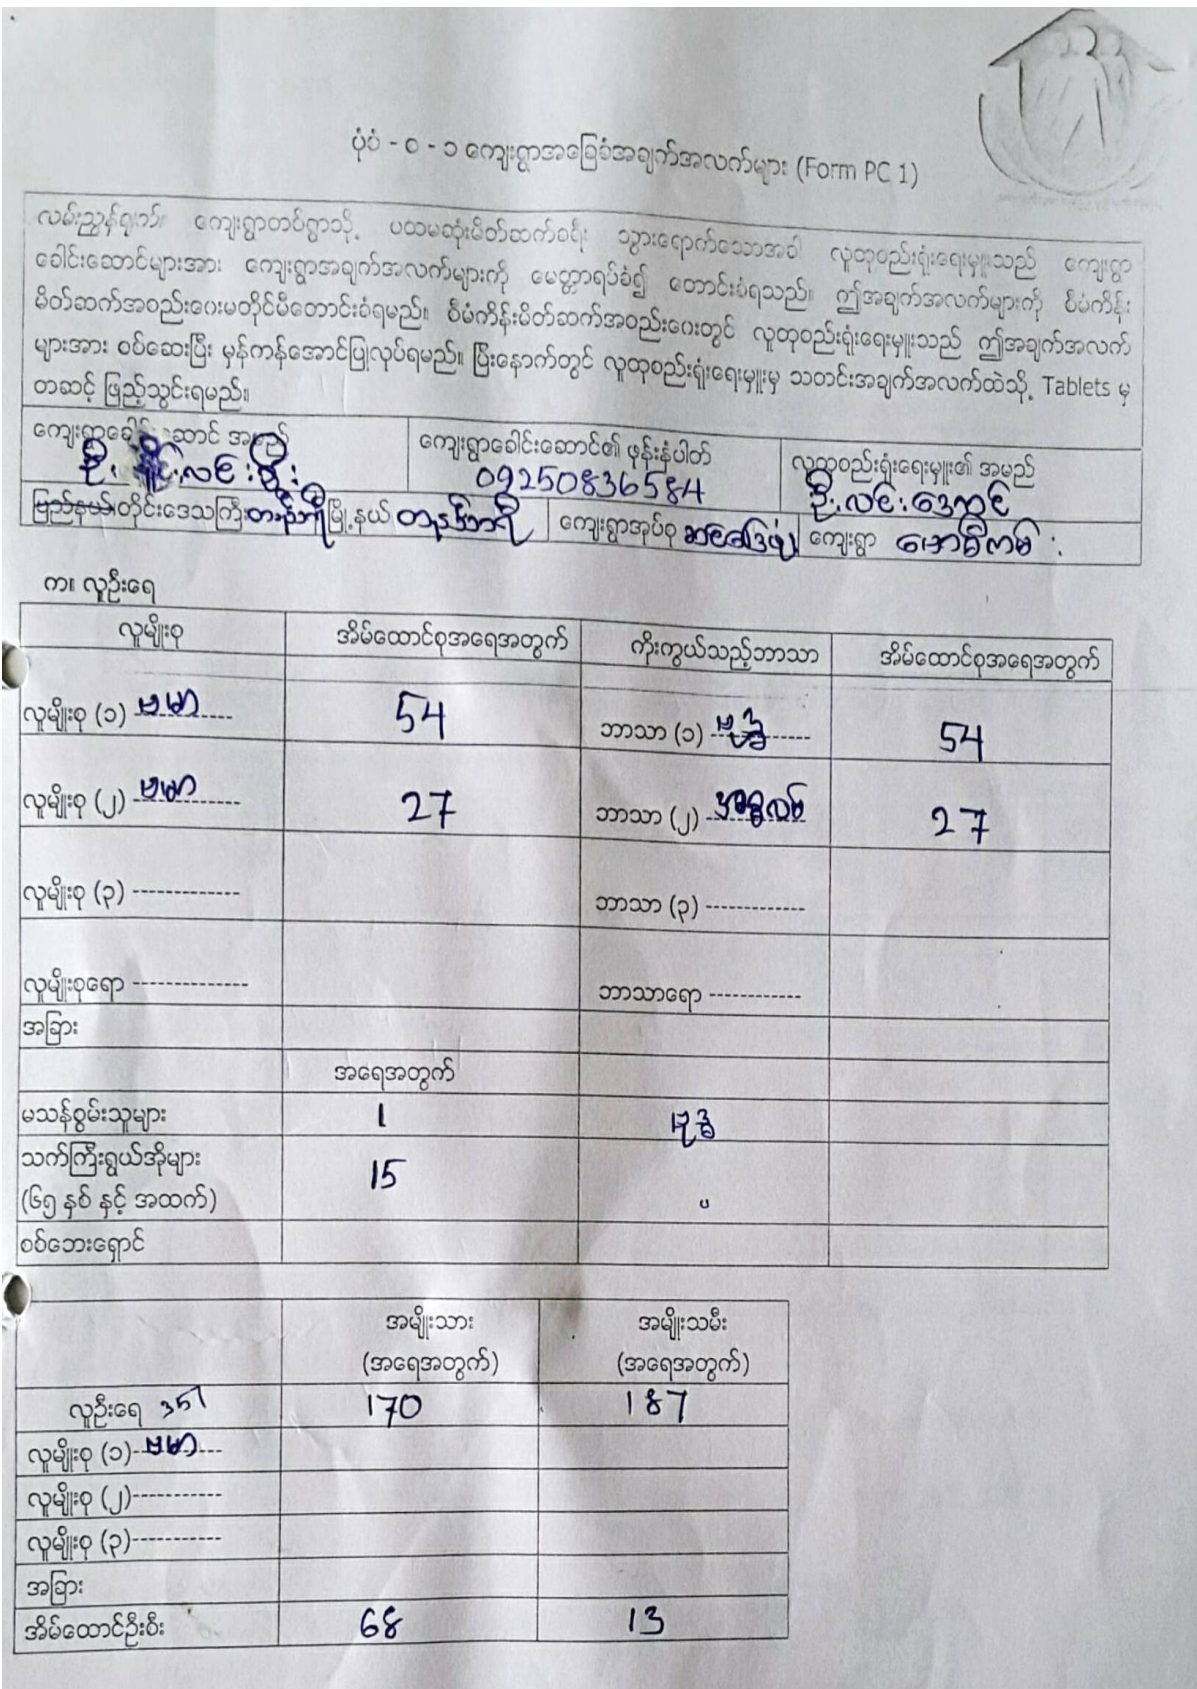 ပုံစံ - စ - ၁ ကျေးရွာအခြေခံအချက်အလက်များ (Form PC 1)
လမ်းညွှန်ရှုက်။ ကျေးရွာတစ်ရွာသို့ ပထမဆုံးမိတ်ဆက်ခရီး သွားရောက်သောအခါ လူထုစည်းရုံးရေးမှူးသည် ကျေးရွာ
ခေါင်းဆောင်များအား ကျေးရွာအချက်အလက်များကို မေတ္တာရပ်ခံ၍ တောင်းခံရသည်။ ဤအချက်အလက်များကို စီမံကိန်း
မိတ်ဆက်အစည်းဝေးမတိုင်မီတောင်းခံရမည်။ စီမံကိန်းမိတ်ဆက်အစည်းဝေးတွင် လူထုစည်းရုံးရေးမှူးသည် ဤအချက်အလက်
များအား စစ်ဆေးပြီး မှန်ကန်အောင်ပြုလုပ်ရမည်။ ပြီးနောက်တွင် လူထုစည်းရုံးရေးမှူးမှ သတင်းအချက်အလက်ထဲသို့ Tablets မှ
တဆင့် ဖြည့်သွင်းရမည်။
ကျေးရွာခေါင်းဆောင် အမည် ကျေးရွာခေါင်းဆောင်၏ ဖုန်းနံပါတ် လူထုစည်းရုံးရေးမှူး၏ အမည်
ဦး လင်းဦး 09250836584 ဦးလင်းဒေကွင်
ပြည်နယ်/တိုင်းဒေသကြီး တနင်္သာရီ မြို့နယ် တနင်္သာရီ ကျေးရွာအုပ်စု ကျေးရွာ
က။ လူဦးရေ
လူမျိုးစု အိမ်ထောင်စုအရေအတွက် ကိုးကွယ်သည့်ဘာသာ အိမ်ထောင်စုအရေအတွက်
လူမျိုးစု (၁) ဗမာ 54 ဘာသာ (၁) ဗုဒ္ဓ 54
လူမျိုးစု (၂) ဗမာ 27 ဘာသာ (၂) အစ္စလမ် 27
လူမျိုးစု (၃) ------------- ဘာသာ (၃) -------------
လူမျိုးစုရော -------------- ဘာသာရော ------------
အခြား
အရေအတွက်
မသန်စွမ်းသူများ 1 ဗုဒ္ဓ
သက်ကြီးရွယ်အိုများ 15 "
(၆၅ နှစ် နှင့် အထက်)
စစ်ဘေးရှောင်
အမျိုးသား အမျိုးသမီး
(အရေအတွက်) (အရေအတွက်)
လူဦးရေ 357 170 187
လူမျိုးစု (၁) ဗမာ
လူမျိုးစု (၂)-----------
လူမျိုးစု (၃)-----------
အခြား
အိမ်ထောင်ဦးစီး 68 13